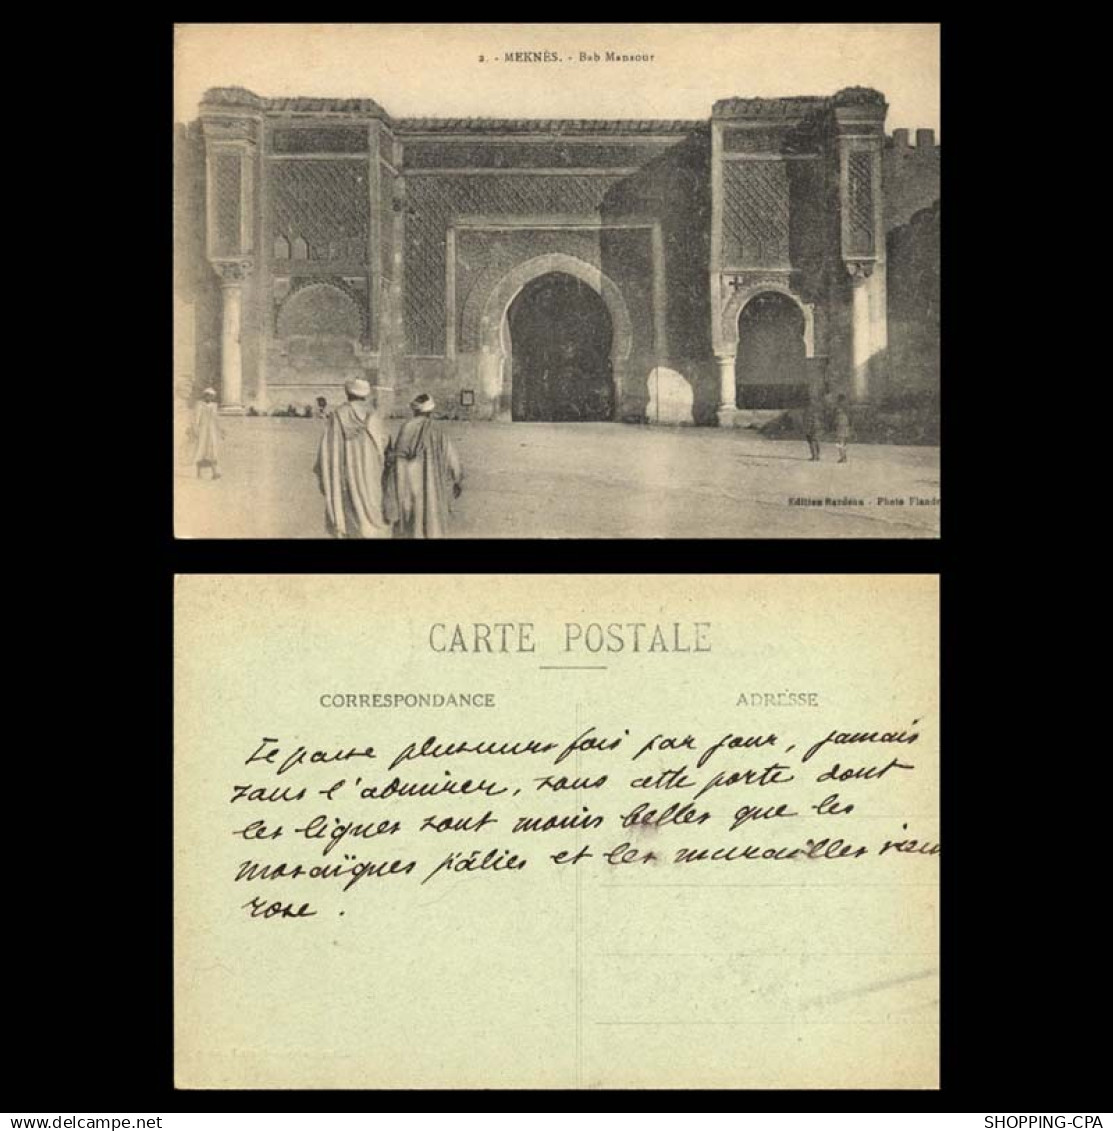 2. - MEKNÈS. - Bab Mansour
Edition Bardenn - Photo Fland
CARTE POSTALE
CORRESPONDANCE
ADRESSE
Je passe plusieurs fois par jour, jamais
sans l'admirer, sous cette porte dont
les lignes sont moins belles que les
mosaïques pâlies et les murailles vieux
rose.
SHOPPING-CPA